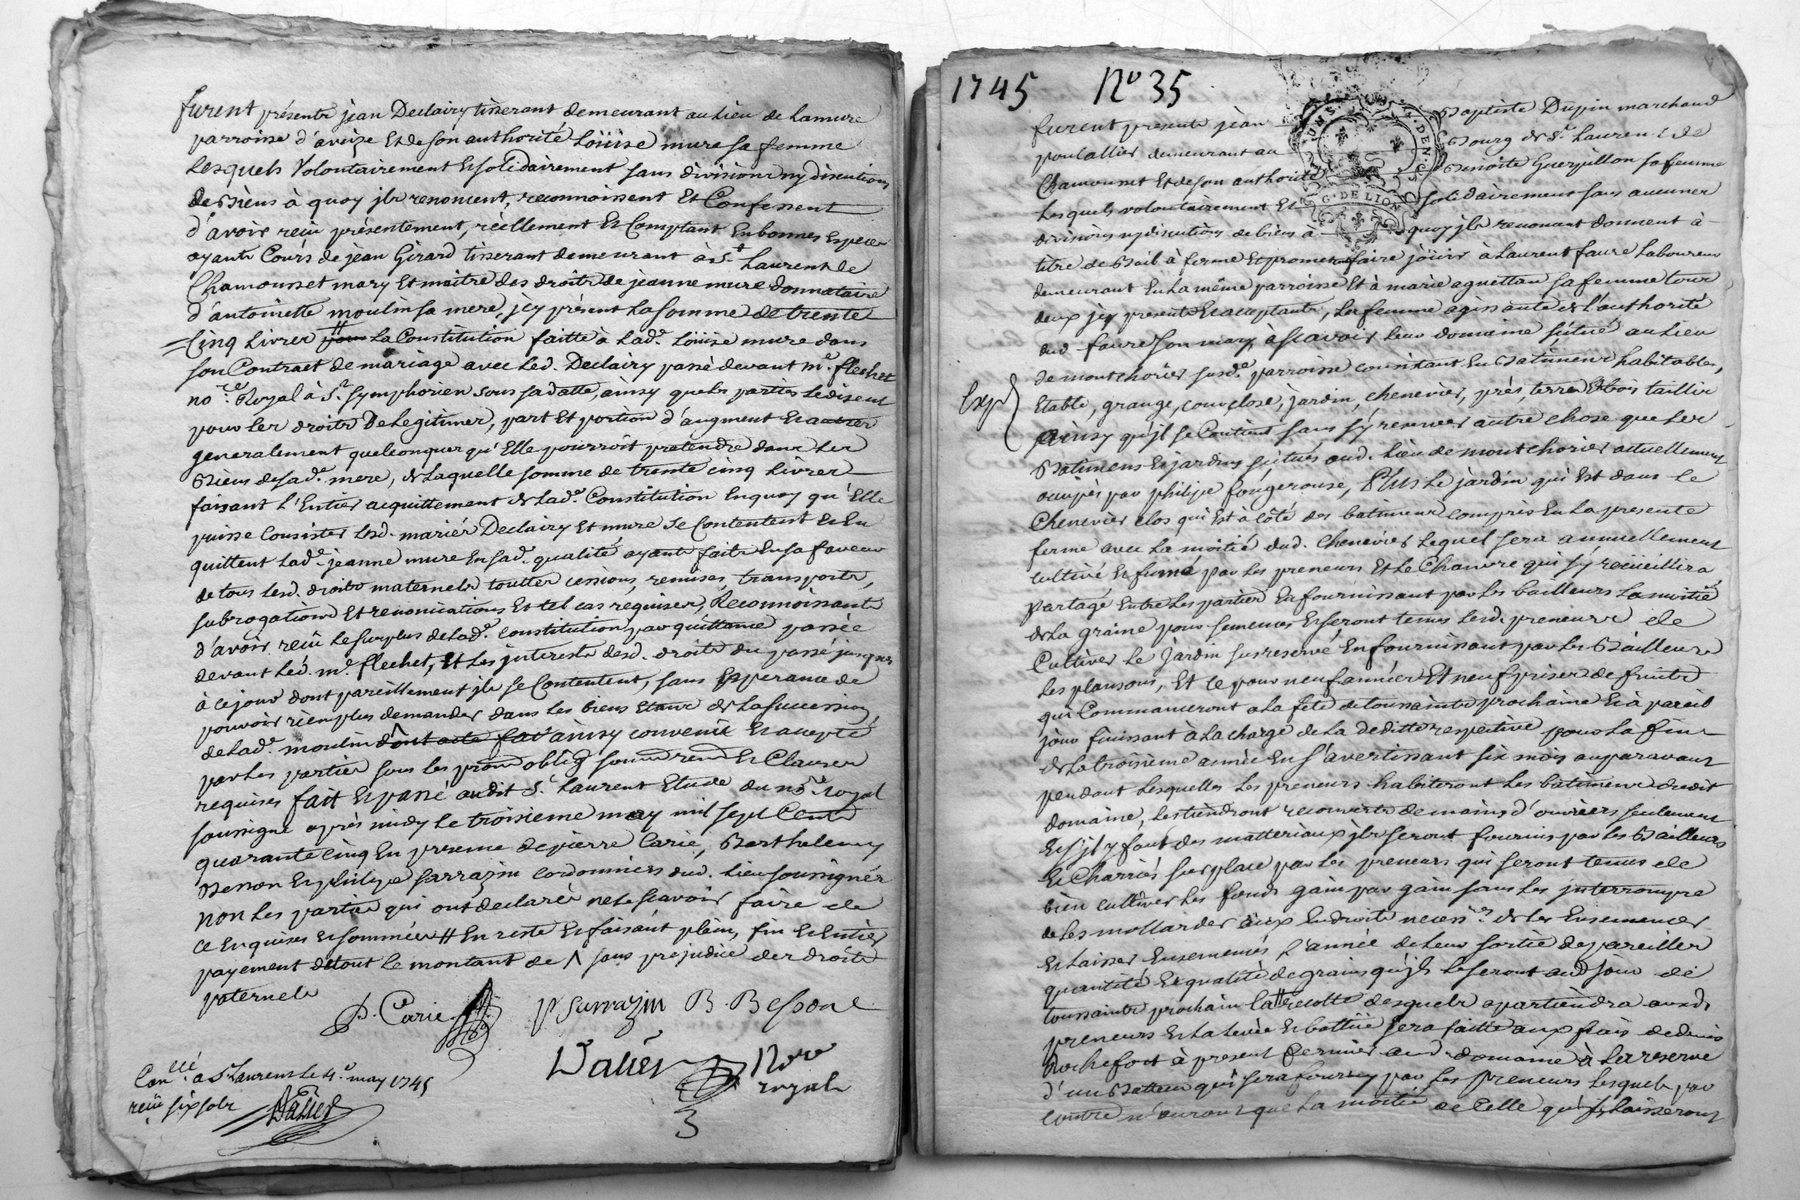 furent présents jean Declairy tisserant demeurant au Lieu de Lamure
parroisse d'aveise Et de son authorité Loüise mure sa femme
Lesquels Volontairement Et solidairement sans division ny discution
de Biens à quoy jls renoncent, reconnoissent Et Confessent
d'avoir reçu présentement, réellement Et Comptant En bonnes Especes
ayants Cours de jean Girard tisserant demeurant à St. Laurent de
Chamousset mary Et maitre des droits de jeanne mure donnataire
d'antoinette moulin sa mere, jcy présent La somme de trente
Cinq Livres # La Constitution faitte à Lad. Loüise mure dans
son Contract de mariage avec Led. Declairy passé devant me. flechet
nore. Royal à St. symphorien sous sa datte, ainsy que les parties Le disent
pour les droits De Legitimes, part Et portion d'augment Et autres
generalement quelconques qu'Elle pourroit pretendre dans Les
Biens de sade. mere, de Laquelle somme de trente cinq Livres
faisant l'Entier acquittement de Lade. Constitution En quoy qu'Elle
puisse Consister Lesd. mariés Declairy Et mure se Contentent Et En
quittent Lade. jeanne mure En sade. qualité ayants faits En sa faveur
de tous Lesd. droits maternels touttes cessions, remises, transports,
subrogations Et renonciations En tel cas requises, Reconnoissants
d'avoir reçu Le surplus de Lade. constitution par quittance passée
devant Led. me. flechet, Et Les jnterests desd. droits du passé jusques
à ce jour dont pareillement jls se Contentent, sans Esperance de
pouvoir rien plus demander dans Les biens Etant de La succession
de Lade. moulin dont acte ainsy convenû Et accepté
par Les parties sous Les prom oblig soum renon Et Clauses
requises fait Et passé audit St. Laurent Etude du nore. royal
soussigné après midy Le troisieme may mil sept Cents
quarante Cinq En presence de pierre Carie, Barthelemy
Besson Et philipe sarrazin cordonniers dud. Lieu soussignés
non Les parties qui ont declaré ne Le scavoir faire de
ce Enquises Et sommées # En reste Et faisant plein, fin Et Entier
payement de tout Le montant de ʌ sans prejudice des droits
paternels
P. Carie
P Sarrazin B. Besson
Valier Nore
royal
Conllé. à St. Laurent Le 4e. may 1745
reçu six sols
Valier
3
1745 No 35
G. DE LION
furent presents jean Baptiste Dupin marchand
poulallier demeurant au Bourg de St. Laurent de
Chamousset Et de son authorité Benoite Guerpillon sa femme
Lesquels volontairement Et solidairement sans aucunes
divisions ny discutions de biens à quoy jls renoncent donnent à
titre de Bail à ferme Et promettent faire jöuir à Laurent faure Laboureur
demeurant En La même parroisse Et à marie aguettan sa femme tous
deux jcy presents Et acceptants, La femme agissante de L'authorité
dud. faure son mary, à scavoir Leur domaine scitué au Lieu
de montchorier susde. parroisse consistant En Batimens habitables,
Exp
Etable, grange, cour close, jardin, chenevier, près, terres Et bois taillis
ainsy qu'jl se Contient sans s'y reserver autre chose que Les
Batimens Et jardins scitués aud. Lieu de montchorier actuellement
occupés par philipe fougerouse, Plus Le jardin qui Est dans Le
Chenevier clos qui Est à côté des batimens compris En La presente
ferme avec La moitié dud. Chenevier Lequel sera annuellement
cultivé Et fumé par Les preneurs Et Le Chanvre qui s'y recüeillira
partagé Entre Les parties En fournissant par Les bailleurs La moitié
de La graine pour semences Et seront tenus Lesd. preneurs de
Cultiver Le Jardin sus reservé En fournissant par Les Bailleurs
Les plansons, Et ce pour neuf années Et neuf prises de fruits
qui Commanceront a La fête de toussaints prochaine Et à pareil
jour finissant à La charge de La deditte respective pour La fin
de La troisieme année En s'avertissant six mois auparavant
pendant Lesquelles Les preneurs habiteront Les batimens dudit
domaine, Les tiendront recouverts de mains d'ouvriers seulement
Et s'jl y faut des matteriaux jls seront fournis par Les Bailleurs
Et Charriés sur place par Les preneurs qui seront tenus de
bien cultiver Les fonds gain par gain sans Les jnterrompre
de Les mollarder aux Endroits necesres. de Les Ensemencer
Et Laisser Ensemencés L'année de Leur sortie de pareilles
quantité Et qualité de grains qu'jls Le seront aud. jour de
toussaints prochain La recolte desquels apartiendra ausd.
preneurs Et La levée Et battüe sera faitte aux frais de denis
Rochefort à present fermier aud. domaine à La reserve
d'un Batteur qui sera fourny par Les preneurs Lesquels par
contre n'auront que La moitié de Celle qu'jls Laisseront